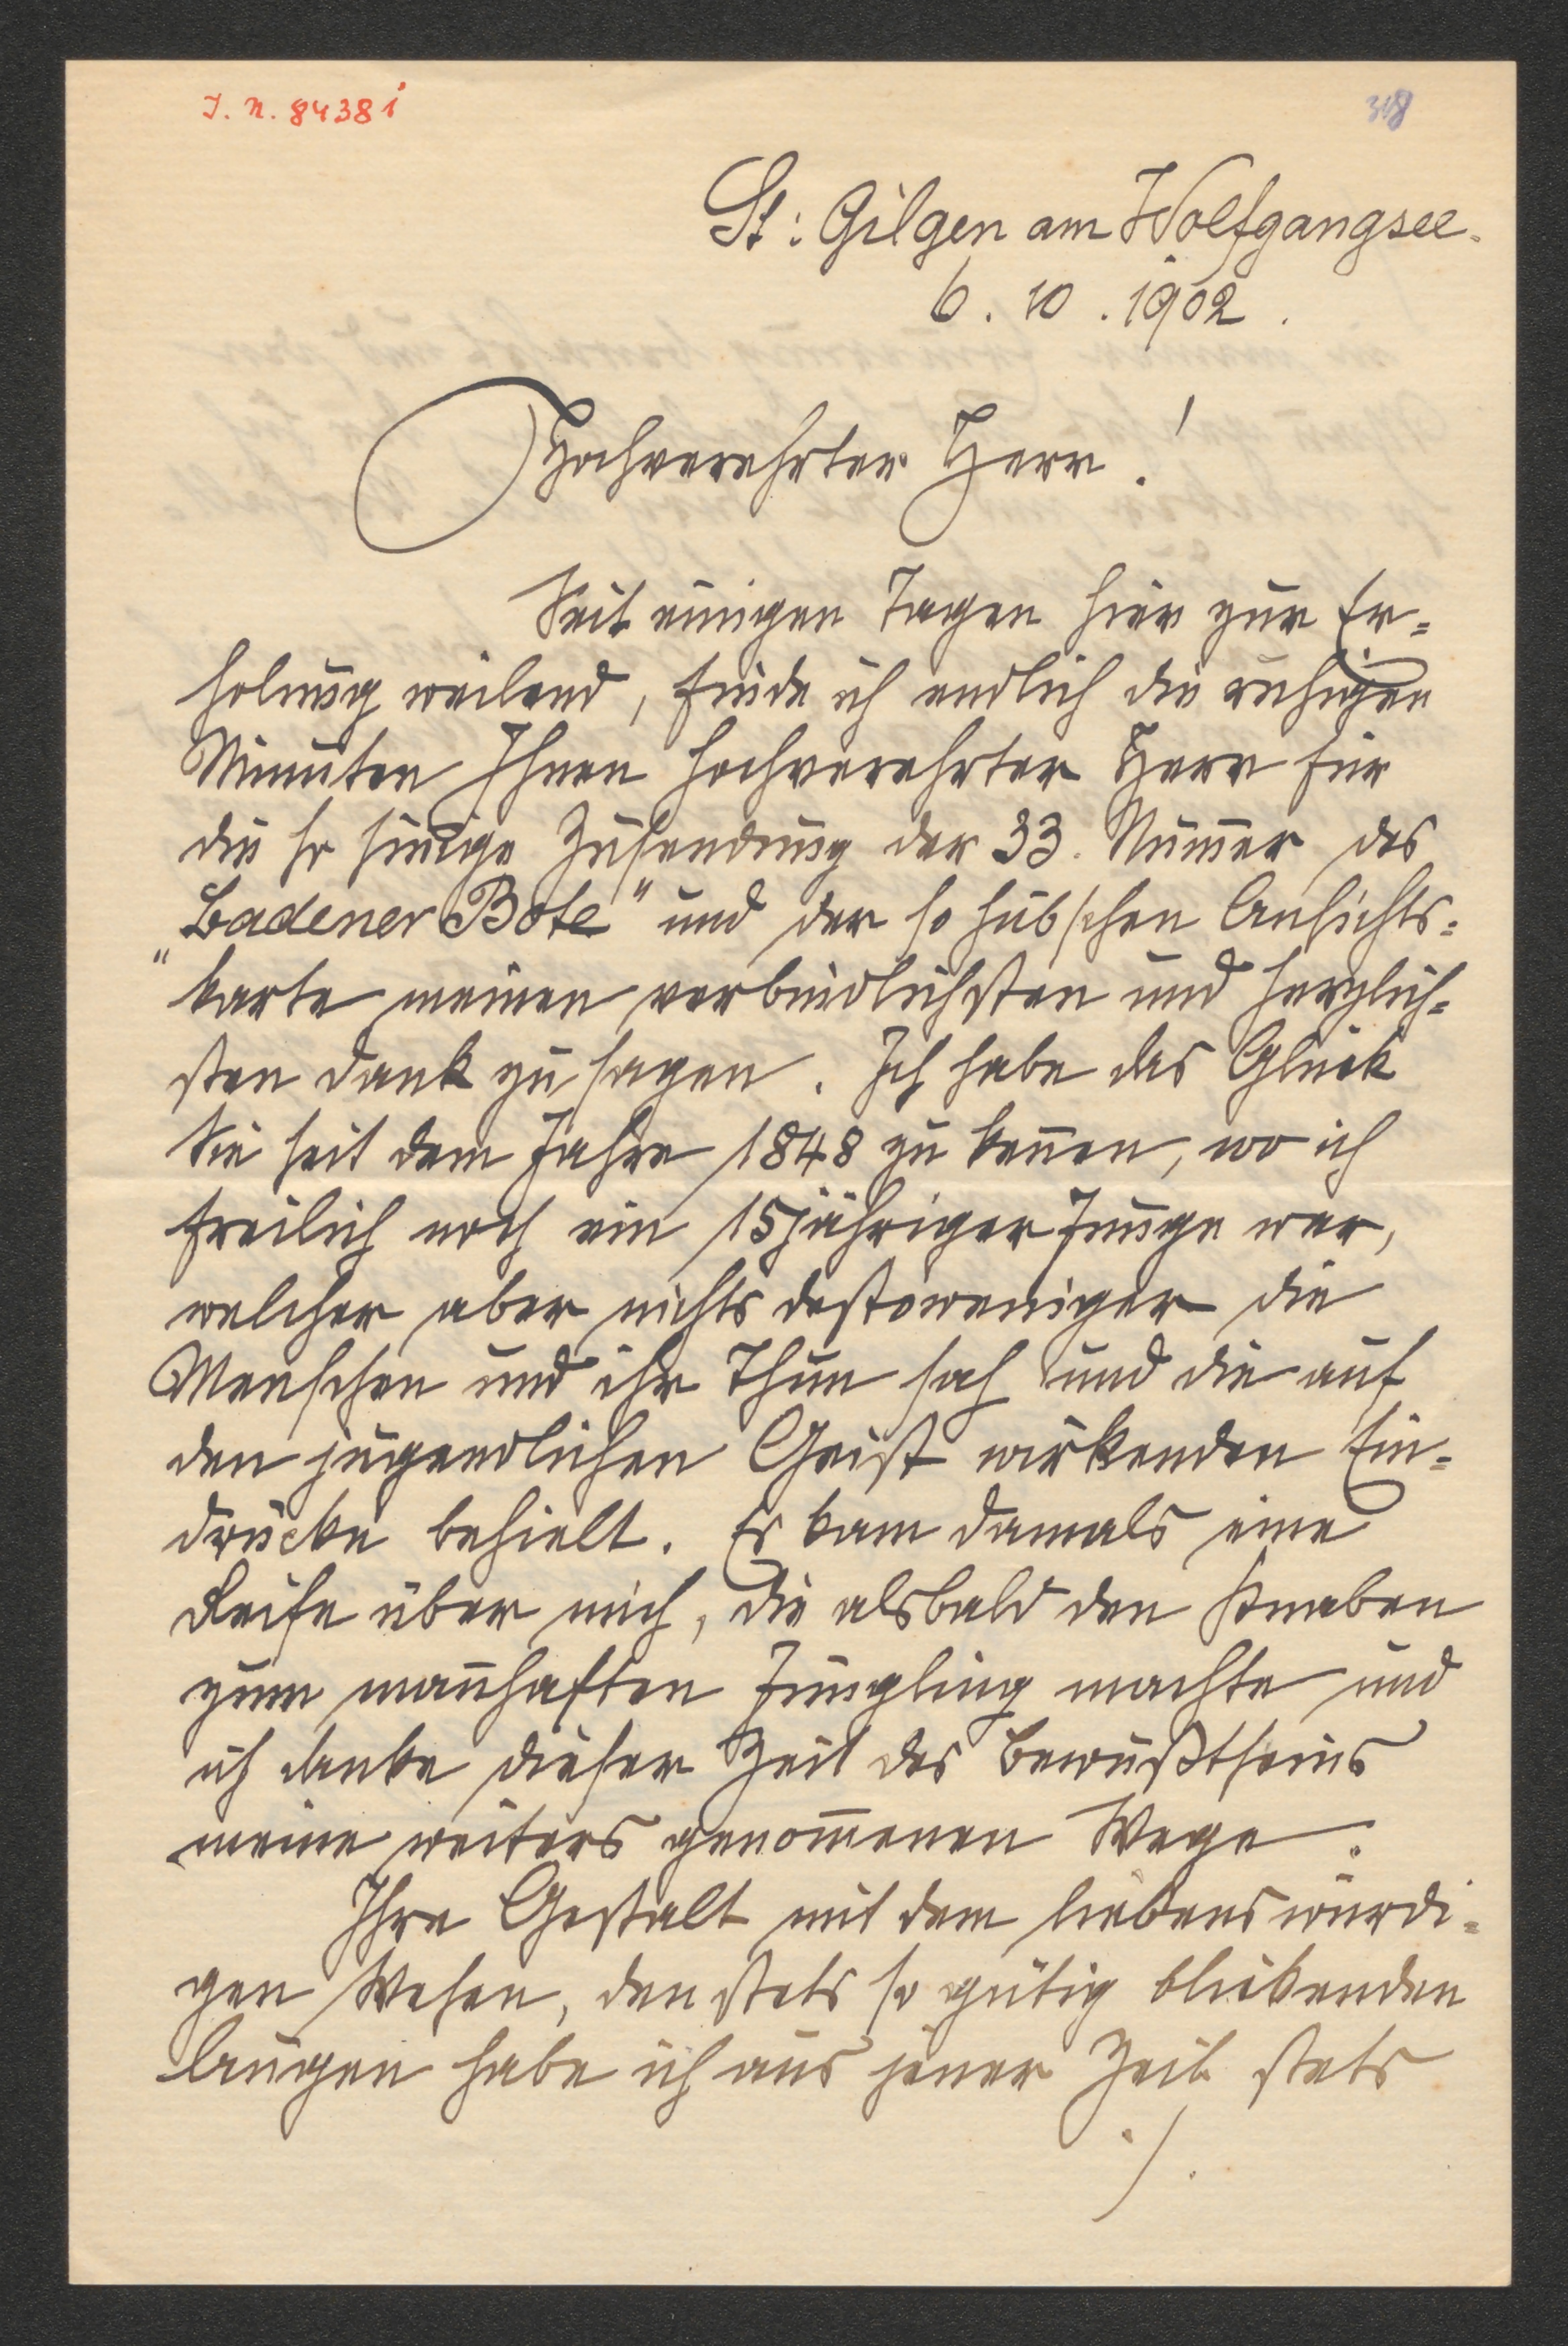 I. N. 8438i
318
St: Gilgen am Wolfgangsee.
6. 10. 1902.
Hochverehrter Herr!
Seit einigen Tagen hier zur Er=
holung weilend, finde ich endlich die ruhigen
Minuten Ihnen hochverehrter Herr für
die so sinnige Zusendung der 33. Num̄er des
„Badener Bote" und der so hübschen Ansichts=
karte meinen verbindlichsten und herzlich=
sten Dank zu sagen. Ich habe das Glück
Sie seit dem Jahre 1848 zu keñen, wo ich
freilich noch ein 15jähriger Junge war,
welcher aber nichts destoweniger die
Menschen und ihr Thun sah und die auf
den jugendlichen Geist wirkenden Ein=
drücke behielt. Es kam damals eine
Reife über mich, die alsbald den Knaben
zum mañhaften Jüngling machte und
ich danke dieser Zeit des Bewußtseins
meine weiters genom̄enen Wege.
Ihre Gestalt mit dem liebenswürdi=
gen Wesen, den stets so gütig blickenden
Augen habe ich aus jener Zeit stets
./.